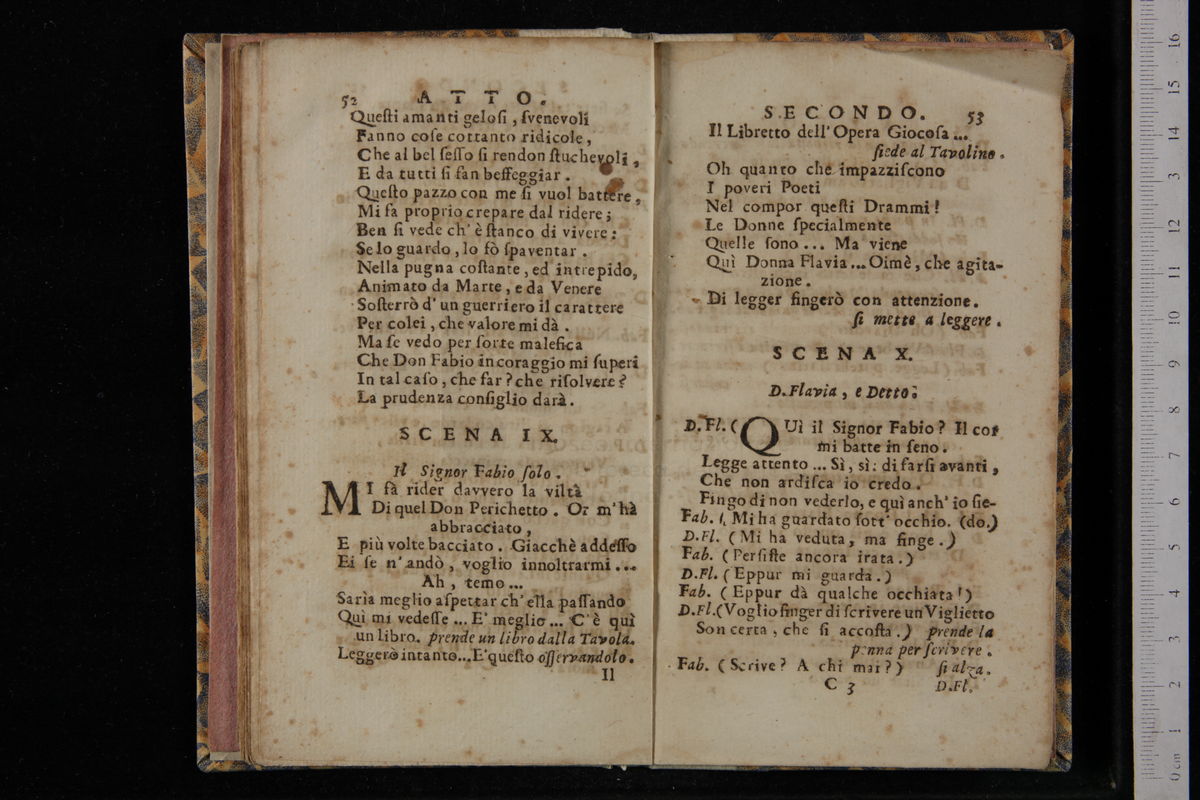 52 ATTO.
Queſti amanti geloſi, ſvenevoli
Fanno coſe cottanto ridicole,
Che al bel ſeſſo ſi rendon ſtuchevoli,
E da tutti ſi fan beffeggiar.
Queſto pazzo con me ſi vuol battere,
Mi fa proprio crepare dal ridere;
Ben ſi vede ch' è ſtanco di vivere:
Se lo guardo, lo fò ſpaventar.
Nella pugna coſtante, ed intrepido,
Animato da Marte, e da Venere
Soſterrò d' un guerriero il carattere
Per colei, che valore mi dà.
Ma ſe vedo per ſorte malefica
Che Don Fabio in coraggio mi ſuperi
In tal caſo, che far? che riſolvere?
La prudenza conſiglio darà.
SCENA IX.
Il Signor Fabio ſolo.
MI fà rider davvero la viltà
Di quel Don Perichetto. Or m' hà
abbracciato,
E più volte bacciato. Giacchè addeſſo
Ei ſe n' andò, voglio innoltrarmi...
Ah, temo...
Sarìa meglio aſpettar ch' ella paſſando
Qui mi vedeſſe... E' meglio... C' è quì
un libro. prende un libro dalla Tavola.
Leggerò intanto... E' queſto oſſervandolo.
Il
SECONDO. 53
Il Libretto dell' Opera Giocoſa...
ſiede al Tavolino.
Oh quanto che impazziſcono
I poveri Poeti
Nel compor queſti Drammi!
Le Donne ſpecialmente
Quelle ſono... Ma viene
Quì Donna Flavia... Oimè, che agita-
zione.
Di legger fingerò con attenzione.
ſi mette a leggere.
SCENA X.
D. Flavia, e Detto.
D. Fl. (QUì il Signor Fabio? Il cor
mi batte in ſeno.
Legge attento... Sì, sì: di farſi avanti,
Che non ardiſca io credo.
Fingo di non vederlo, e quì anch' io ſie-
Fab. (Mi ha guardato ſott' occhio. (do.)
D. Fl. (Mi ha veduta, ma finge.)
Fab. (Perſiſte ancora irata.)
D. Fl. (Eppur mi guarda.)
Fab. (Eppur dà qualche occhiata!)
D. Fl. (Voglio finger di ſcrivere un Viglietto
Son certa, che ſi accoſta.) prende la
penna per ſcrivere.
Fab. (Scrive? A chi mai?) ſi alza.
C 3 D. Fl.
0 cm 1 2 3 4 5 6 7 8 9 10 11 12 13 14 15 16